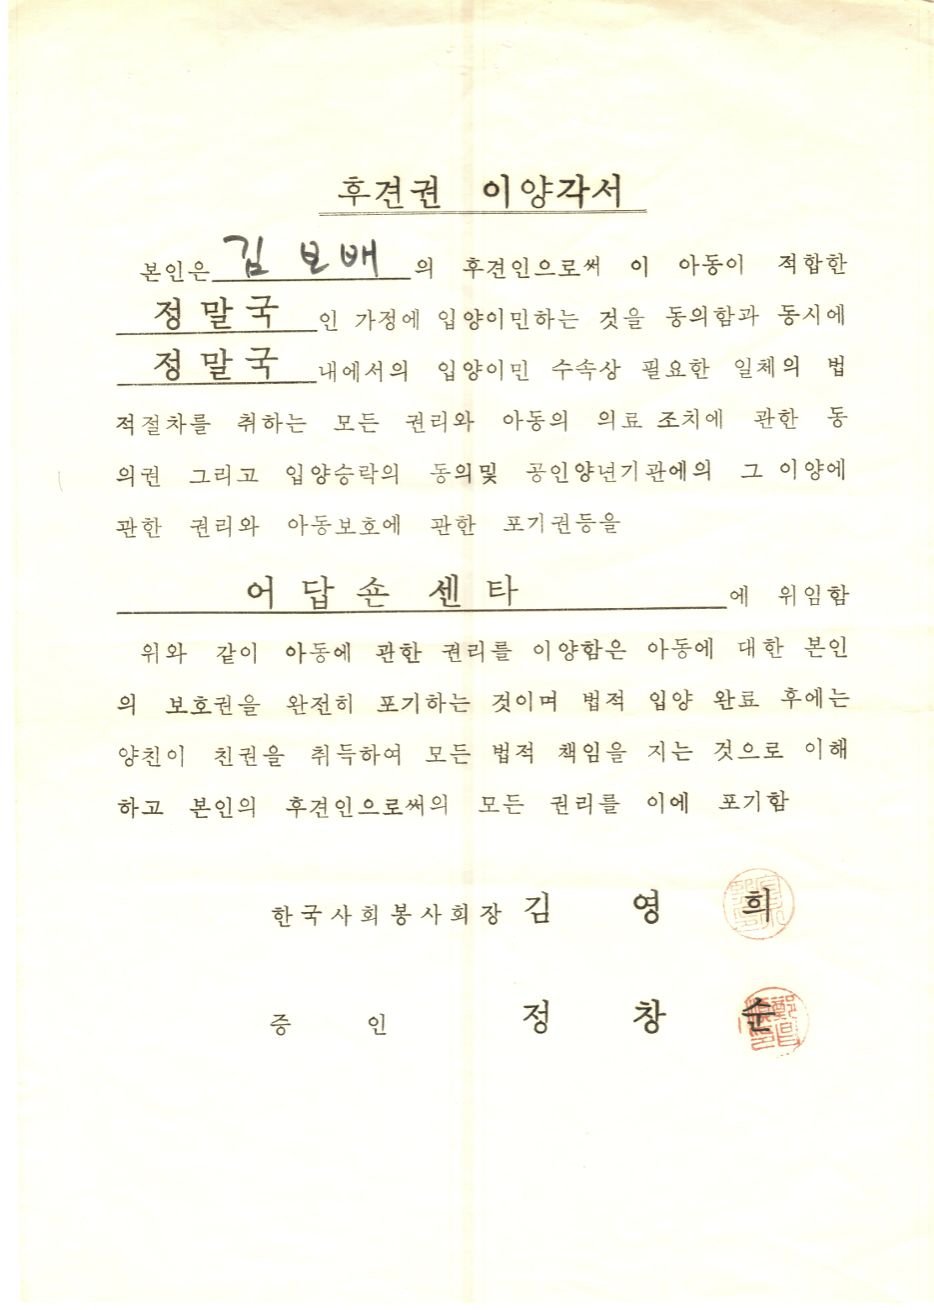 후견권 이양각서
본인은 김 보배 의 후견인으로써 이 아동이 적합한
정말국 인 가정에 입양이민하는 것을 동의함과 동시에
정말국 내에서의 입양이민 수속상 필요한 일체의 법
적절차를 취하는 모든 권리와 아동의 의료 조치에 관한 동
의권 그리고 입양승락의 동의및 공인양년기관에의 그 이양에
관한 권리와 아동보호에 관한 포기권등을
어답숀 센타 에 위임함
위와 같이 아동에 관한 권리를 이양함은 아동에 대한 본인
의 보호권을 완전히 포기하는 것이며 법적 입양 완료 후에는
양친이 친권을 취득하여 모든 법적 책임을 지는 것으로 이해
하고 본인의 후견인으로써의 모든 권리를 이에 포기함
한국사회봉사회장 김 영 희
증 인 정 창 순